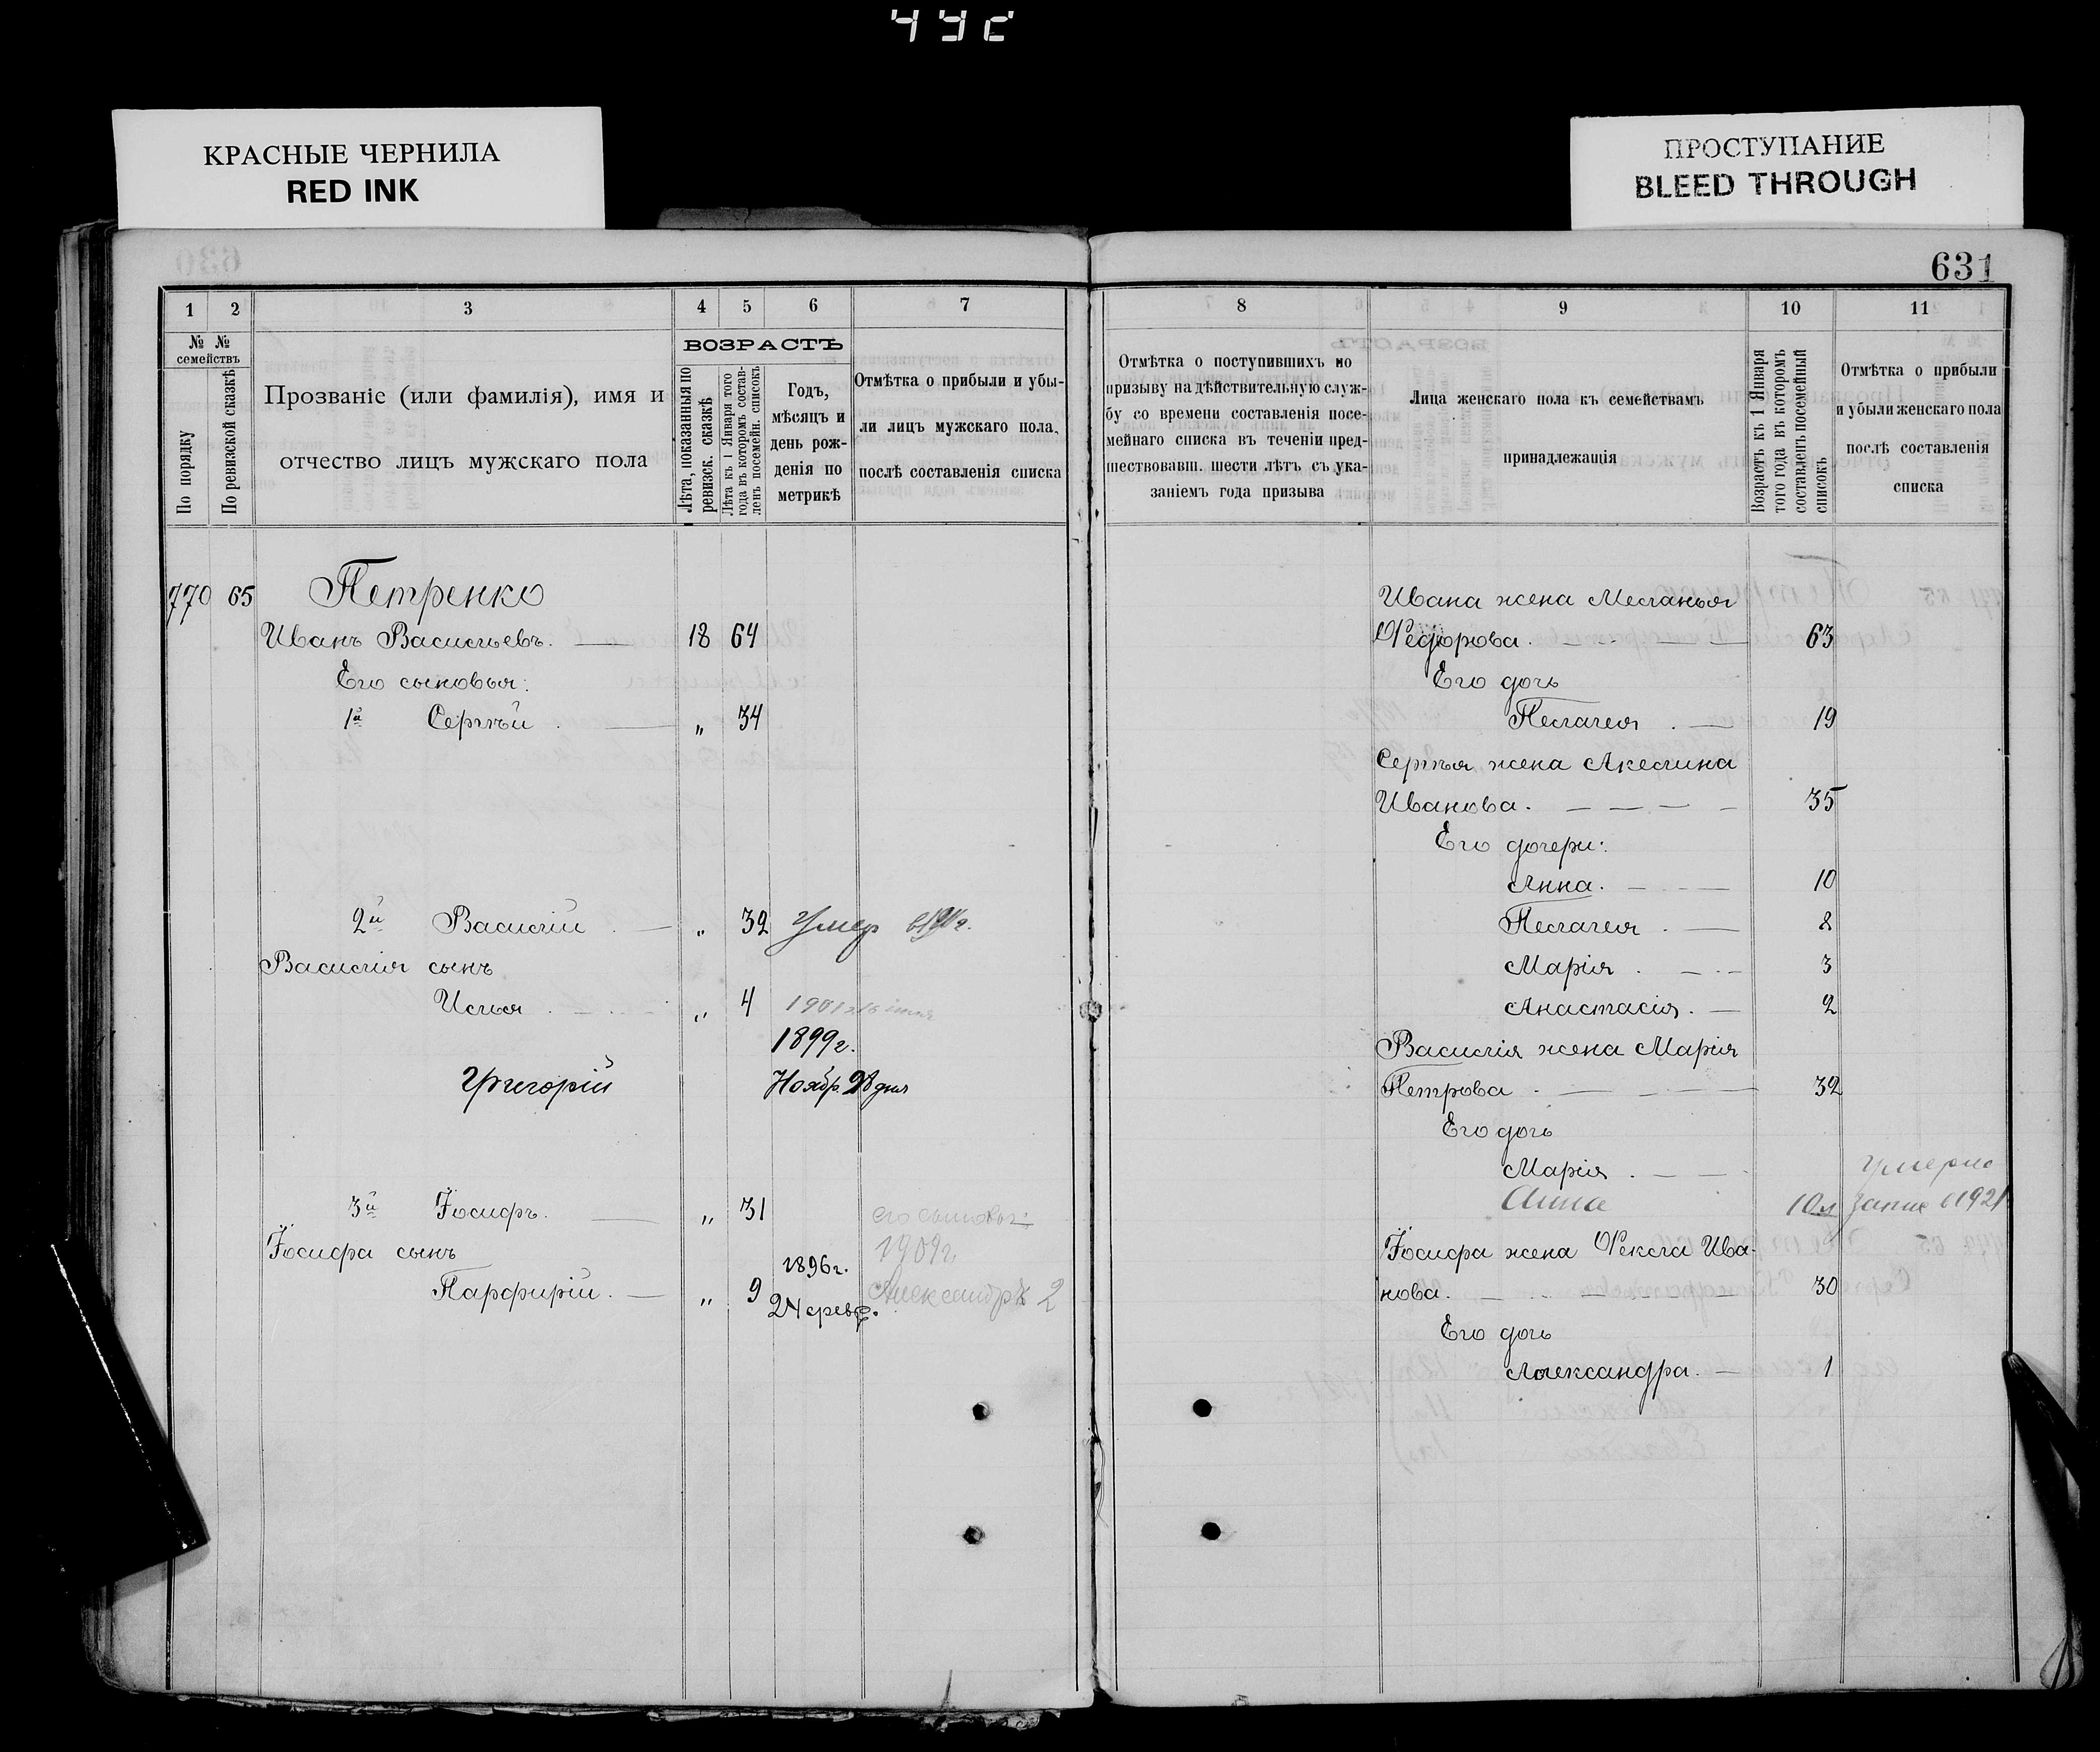 КРАСНЫЕ ЧЕРНИЛА
RED INK
ПРОСТУПАНИЕ
BLEED THROUGH
630
631
1 2 3 4 5 6 7
№ № семействъ
По порядку
По ревизской сказкѣ
Прозваніе (или фамилія), имя и
отчество лицъ мужскаго пола
ВОЗРАСТЪ
Лѣта, показанныя по
ревизск. сказкѣ
Лѣта къ 1 Января того
года въ которомъ состав-
ленъ посемейн. списокъ
Годъ,
мѣсяцъ и
день рож-
денія по
метрикѣ
Отмѣтка о прибыли и убы-
ли лицъ мужскаго пола,
послѣ составленія списка
770 65 Петренко
Иванъ Васильевъ. 18 64
Его сыновья:
1й Сергѣй " 34
2й Василій " 32 Умер
Василія сынъ
Илья " 4
1899г.
Григорій Ноябр. 28 дня
3й Іосифъ. " 31 его сыновья:
Іосифа сынъ 1909г.
1896г.
Парфирій. " 9 24 февр. Александръ 2
8 9 10 11
Отмѣтка о поступившихъ по
призыву на дѣйствительную служ-
бу со времени составленія посе-
мейнаго списка въ теченіи пред-
шествовавш. шести лѣтъ съ ука-
заніемъ года призыва
Лица женскаго пола къ семействамъ
принадлежащія
Возрастъ къ 1 Января
того года въ которомъ
составленъ посемейный
списокъ
Отмѣтка о прибыли
и убыли женскаго пола
послѣ составленія
списка
Ивана жена Меланья
Ѳедорова. 63
Его дочь
Пелагея 19
Сергѣя жена Акелина
Иванова. 35
Его дочери:
Анна. 10
Пелагея 8
Марія 3
Анастасія. 2
Василія жена Марія
Петрова 32
Его дочь
Марія умерла
Анна 10л запис в 1921
Іосифа жена Ѳекла Ива-
нова. 30
Его дочь
Александра. 1